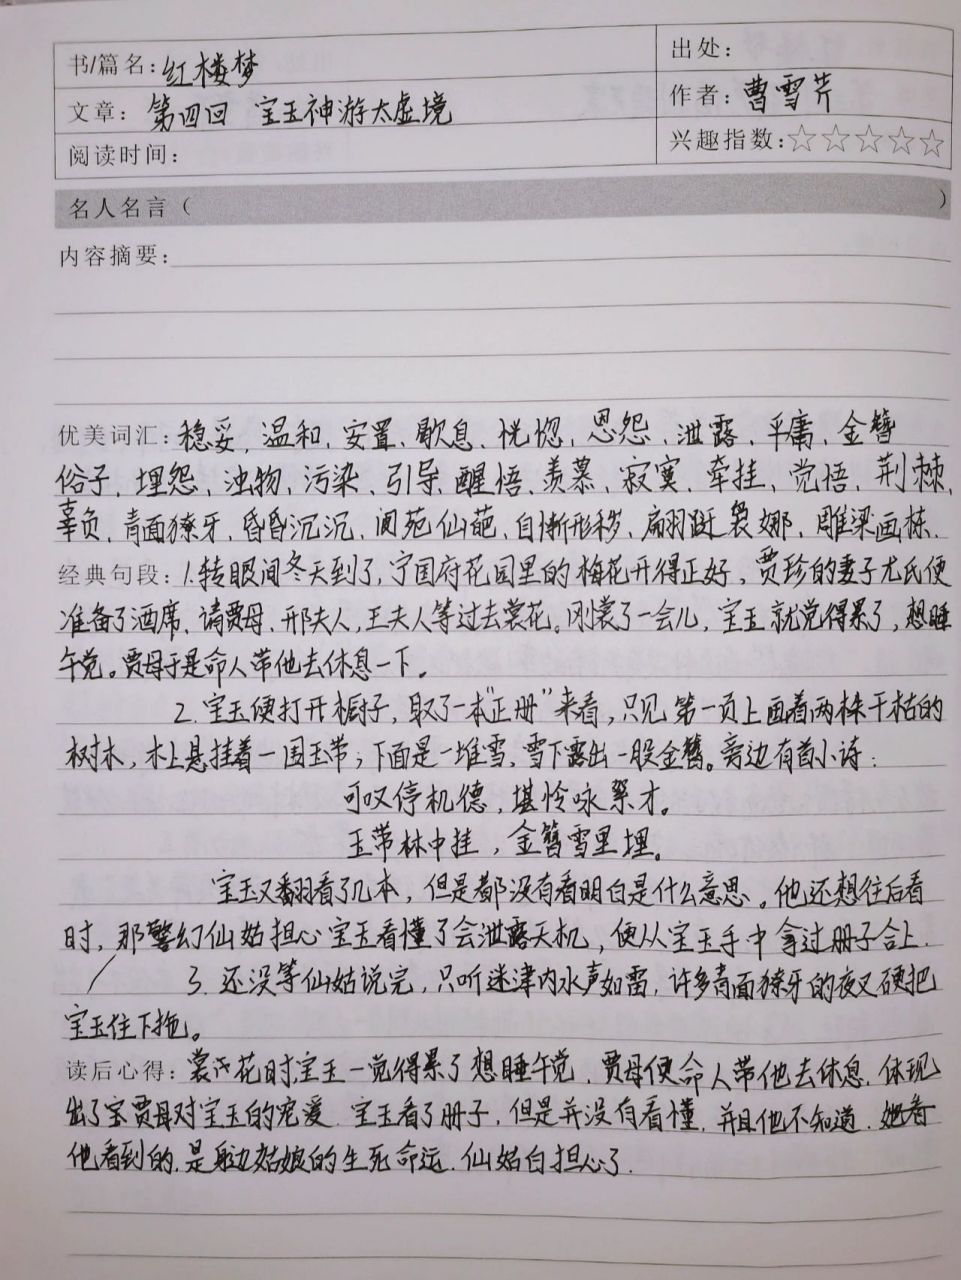 书/篇名：红楼梦 出处：
文章：第四回 宝玉神游太虚境 作者：曹雪芹
阅读时间： 兴趣指数：☆☆☆☆☆
名人名言（ ）
内容摘要：
优美词汇：稳妥、温和、安置、歇息、恍惚、恩怨、泄露、平庸、金簪
俗子、埋怨、浊物、污染、引导、醒悟、羡慕、寂寞、牵挂、觉悟、荆棘、
辜负、青面獠牙、昏昏沉沉、阆苑仙葩、自惭形秽、扁羽跹袅娜、雕梁画栋.
经典句段：1.转眼间冬天到了，宁国府花园里的梅花开得正好，贾珍的妻子尤氏便
准备了酒席、请贾母、邢夫人，王夫人等过去赏花。刚赏了一会儿，宝玉就觉得累了，想睡
午觉。贾母于是命人带他去休息一下。
2.宝玉便打开橱子，取了一本“正册”来看，只见第一页上画着两株干枯的
树木，木上悬挂着一围玉带；下面是一堆雪，雪下露出一股金簪。旁边有首小诗：
可叹停机德，堪怜咏絮才。
玉带林中挂，金簪雪里埋。
宝玉又翻看了几本，但是都没有看明白是什么意思。他还想往后看
时，那警幻仙姑担心宝玉看懂了会泄露天机，便从宝玉手中拿过册子合上.
3.还没等仙姑说完，只听迷津内水声如雷，许多青面獠牙的夜叉硬把
宝玉往下拖。
读后心得：赏花时宝玉一觉得累了想睡午觉，贾母便命人带他去休息，体现
出了贾母对宝玉的宠爱.宝玉看了册子，但是并没有看懂，并且他不知道.
他看到的，是身边姑娘的生死命运.仙姑白担心了.